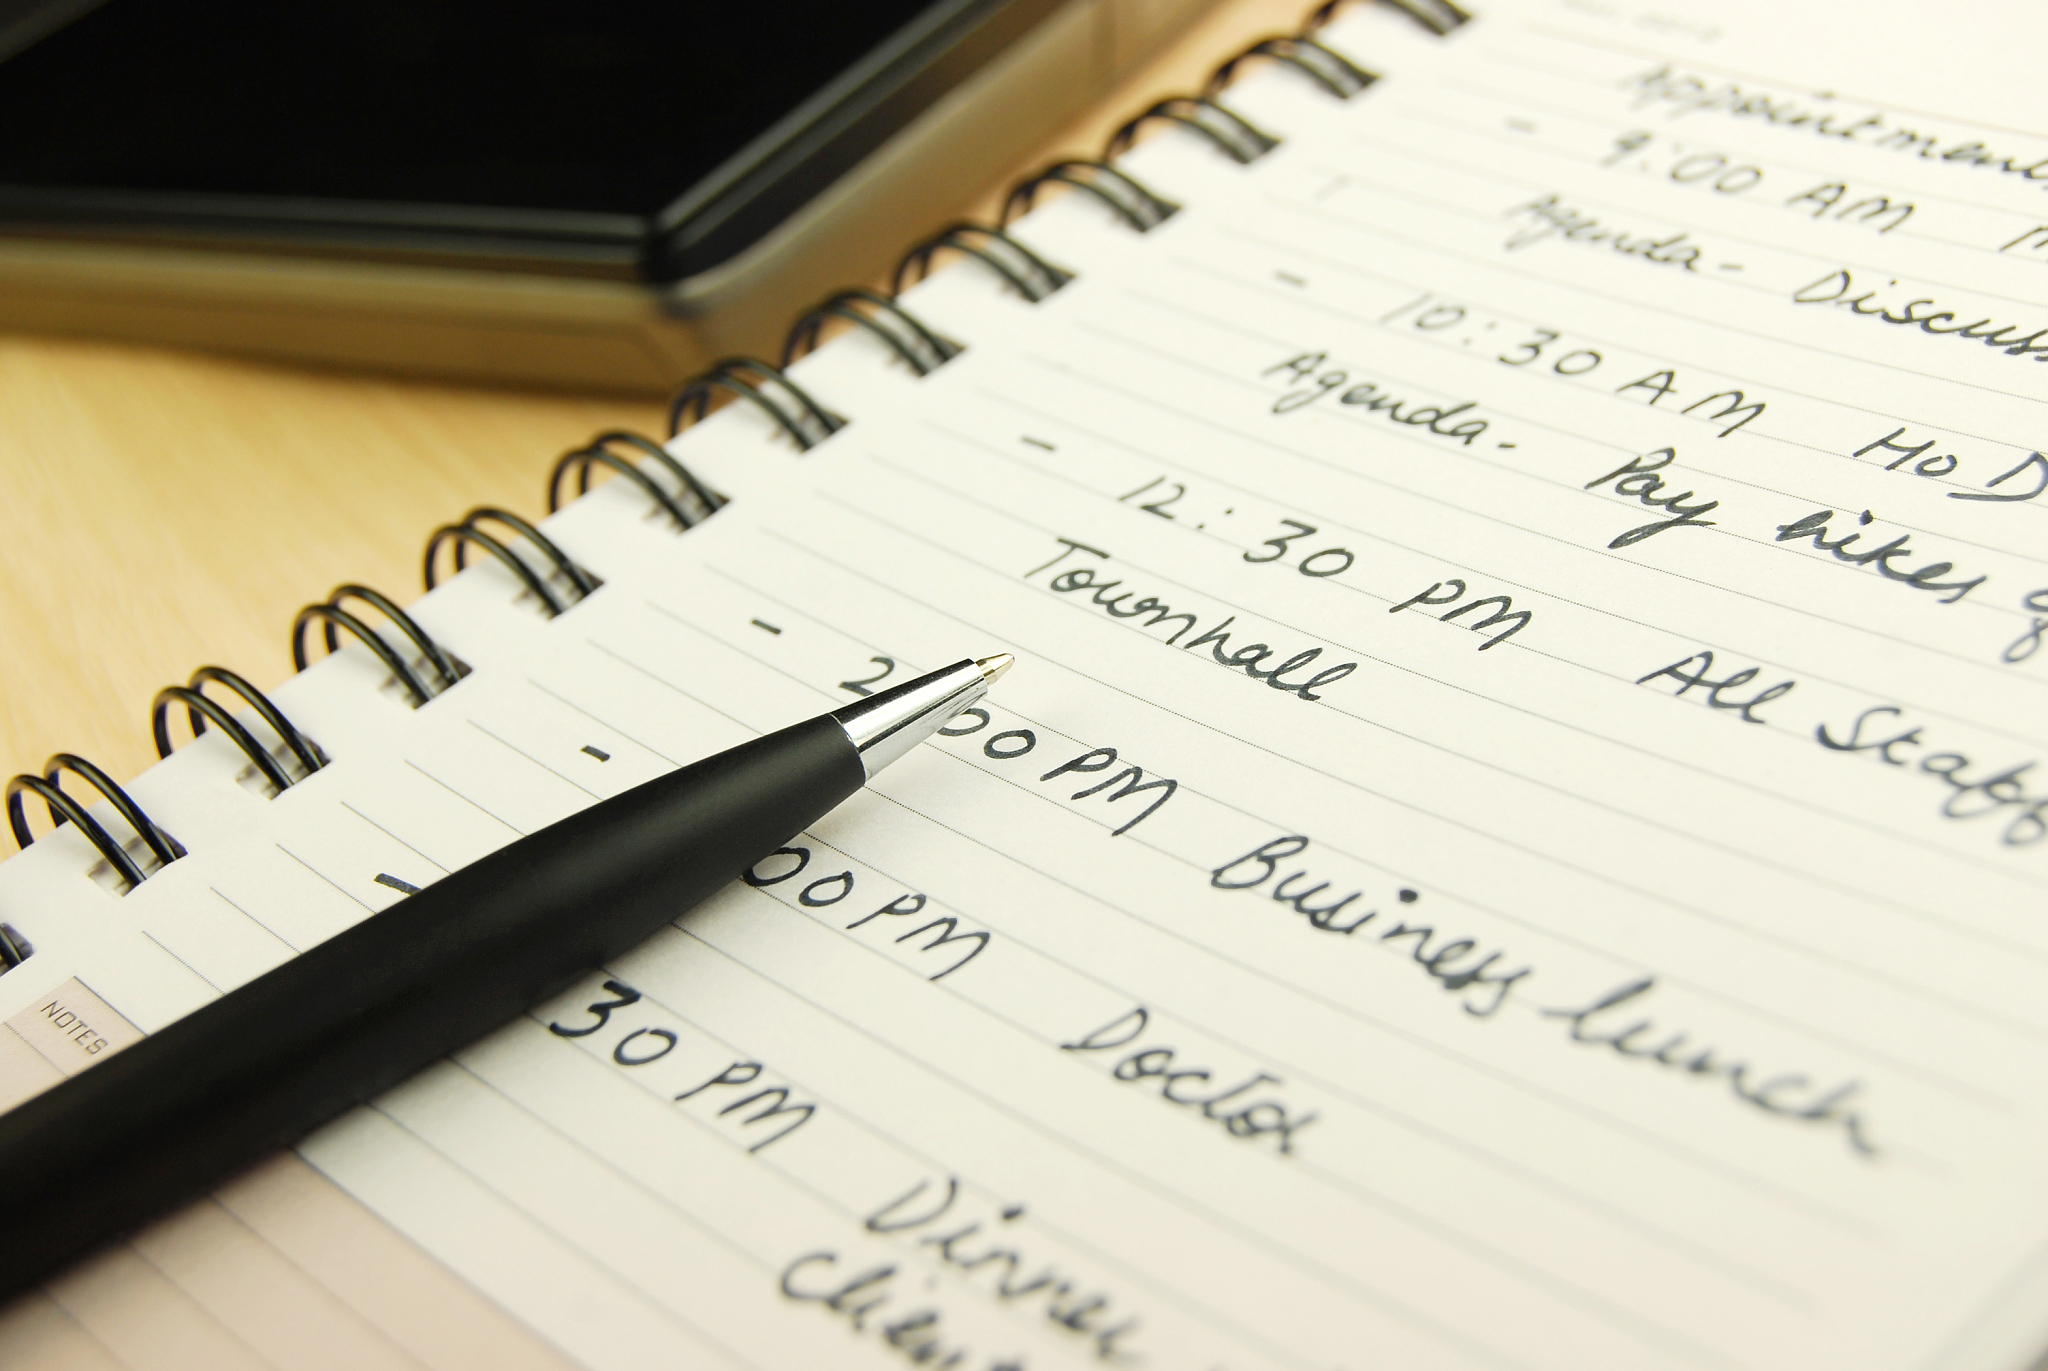 Appointments
- 9:00 AM
Agenda - Discuss
- 10:30 AM HOD
Agenda - Pay hikes of
- 12:30 PM All Staff
Townhall
- 2 00 PM Business lunch
- 00 PM Doctor
- 30 PM Dinner
Client
NOTES